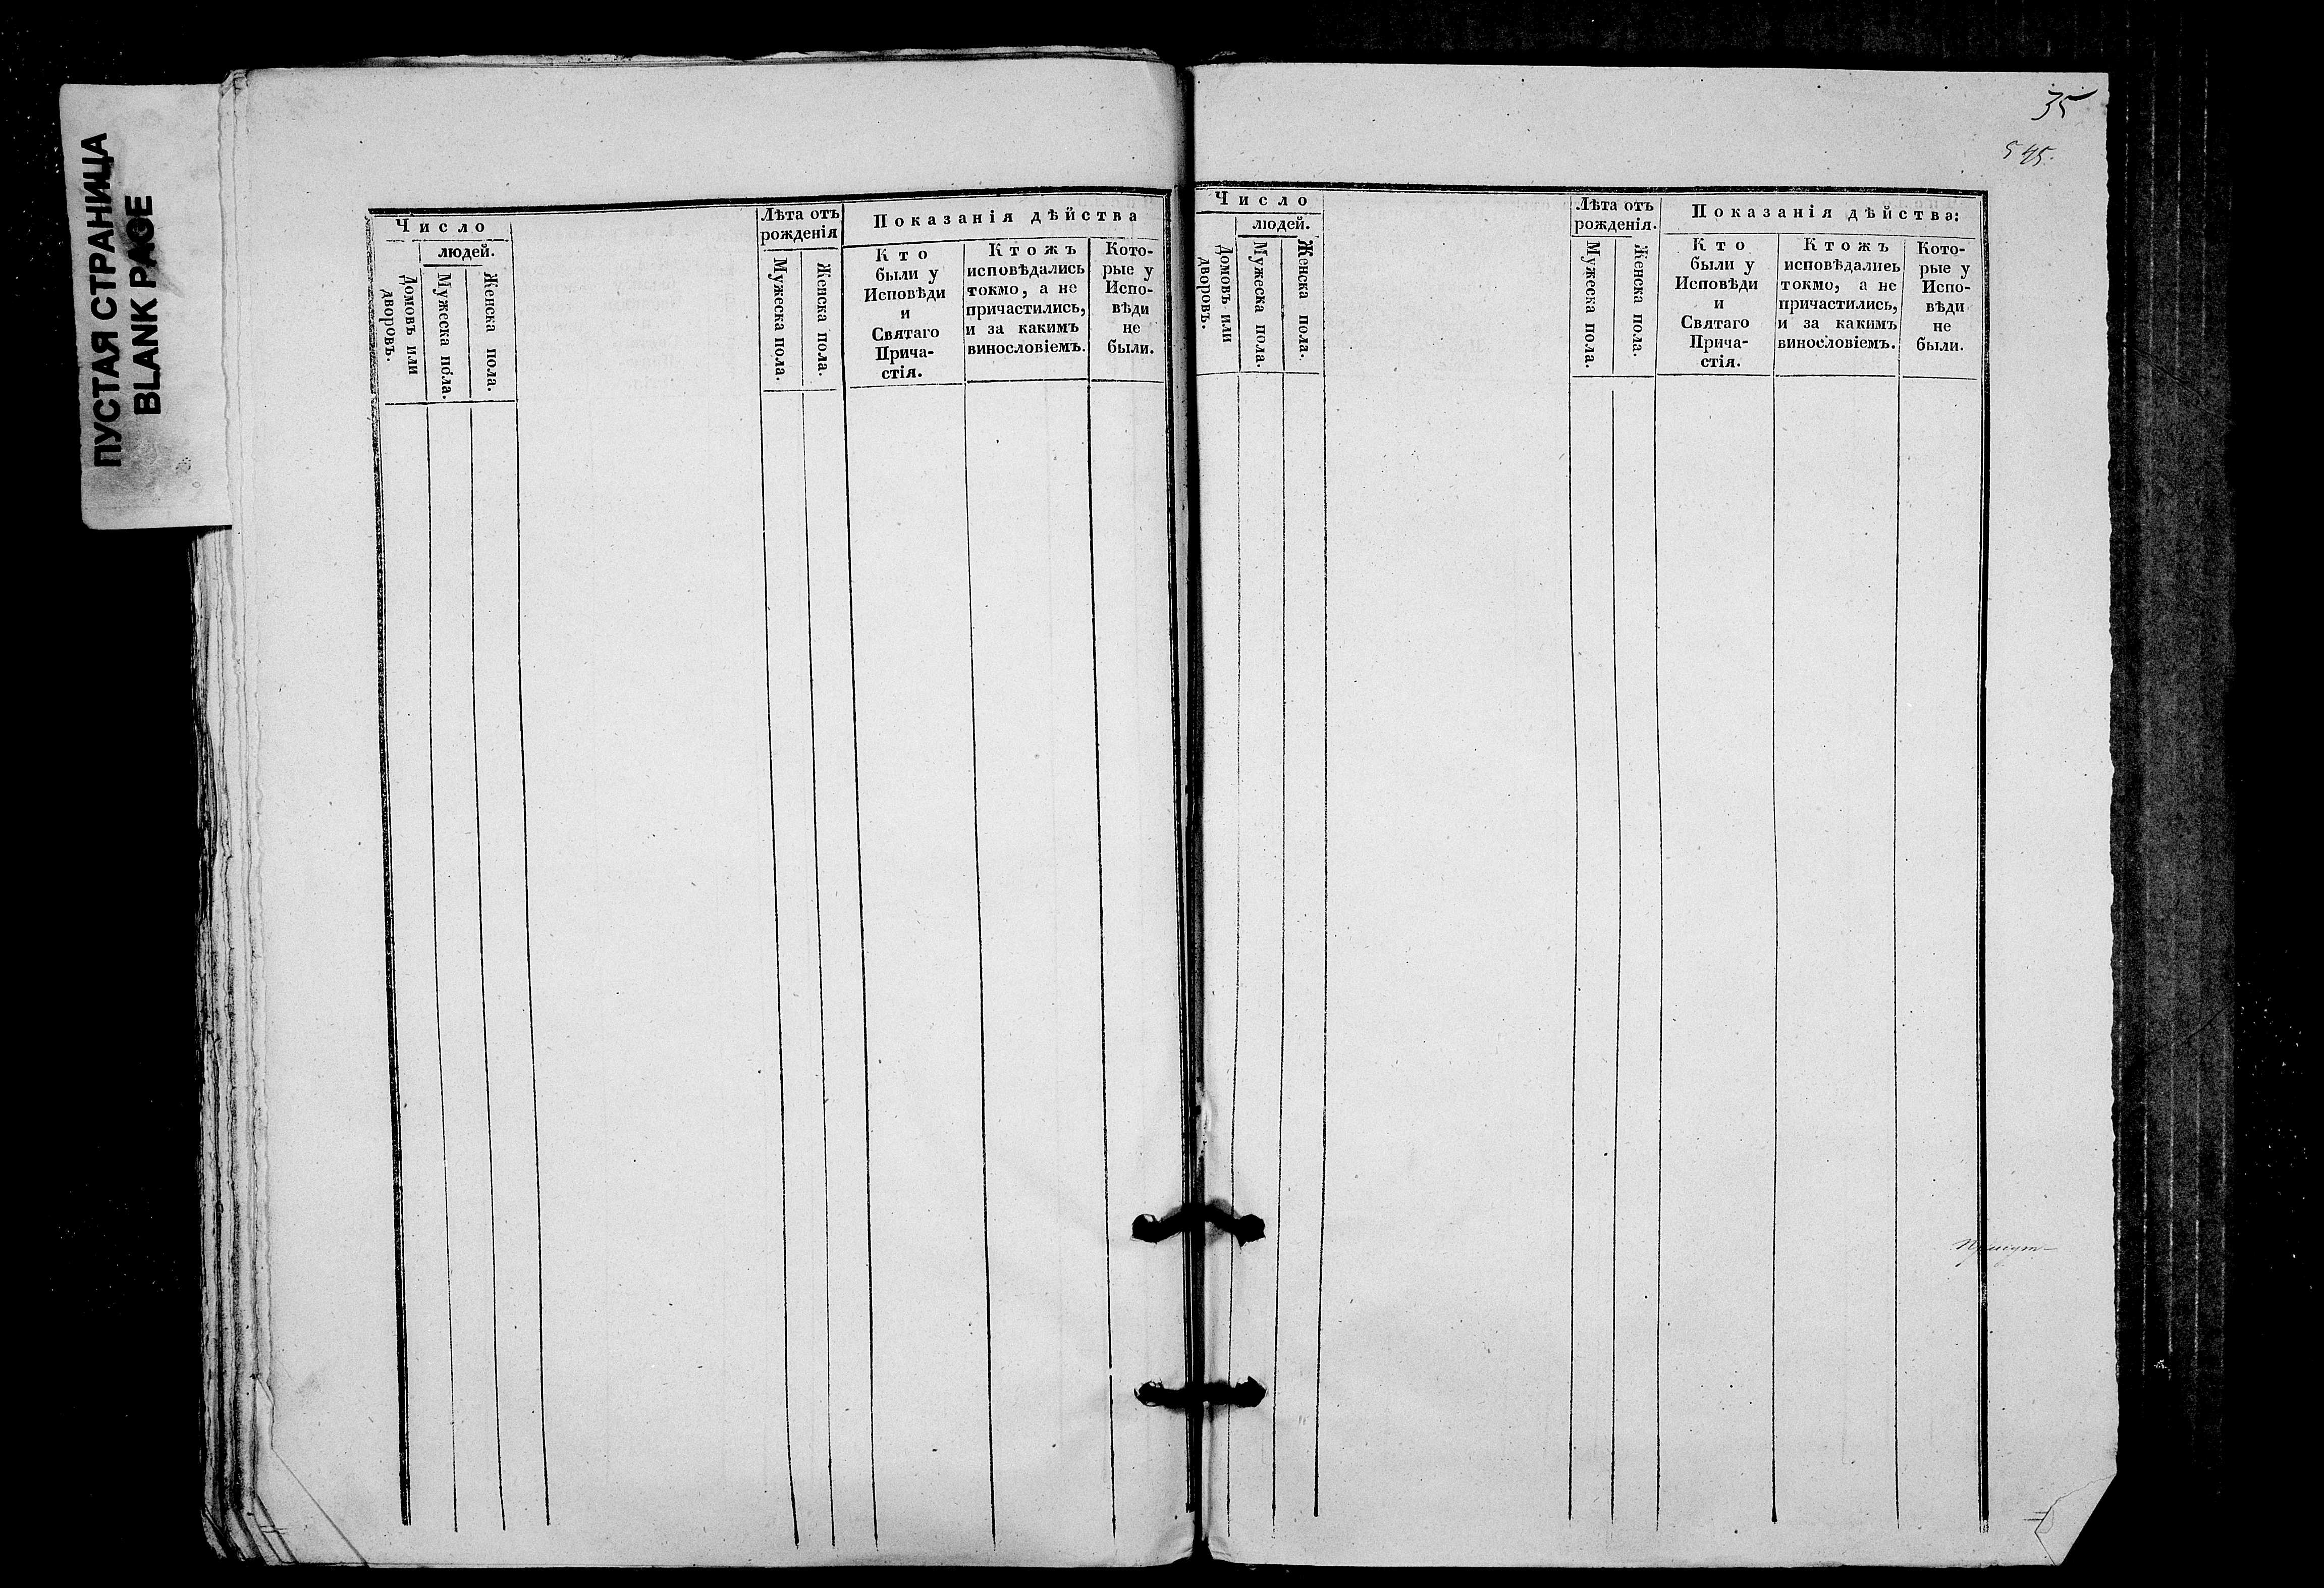 ПУСТАЯ СТРАНИЦА
BLANK PAGE
Число
людей.
Домовъ или дворовъ.
Мужеска пола.
Женска пола.
Лѣта отъ
рожденія
Мужеска пола.
Женска пола.
Показанія дѣйства
Кто
были у
Исповѣди
и
Святаго
Прича-
стія.
Ктожъ
исповѣдались
токмо, а не
причастились,
и за какимъ
винословіемъ.
Кото-
рые у
Испо-
вѣди
не
были.
35
545.
Число
людей.
Домовъ или
дворовъ.
Мужеска пола.
Женска пола.
Лѣта отъ
рожденія.
Мужеска пола.
Женска пола.
Показанія дѣйства:
Кто
были у
Исповѣди
и
Святаго
Прича-
стія.
Ктожъ
исповѣдались
токмо, а не
причастились,
и за какимъ
винословіемъ.
Кото-
рые у
Испо-
вѣди
не
были.